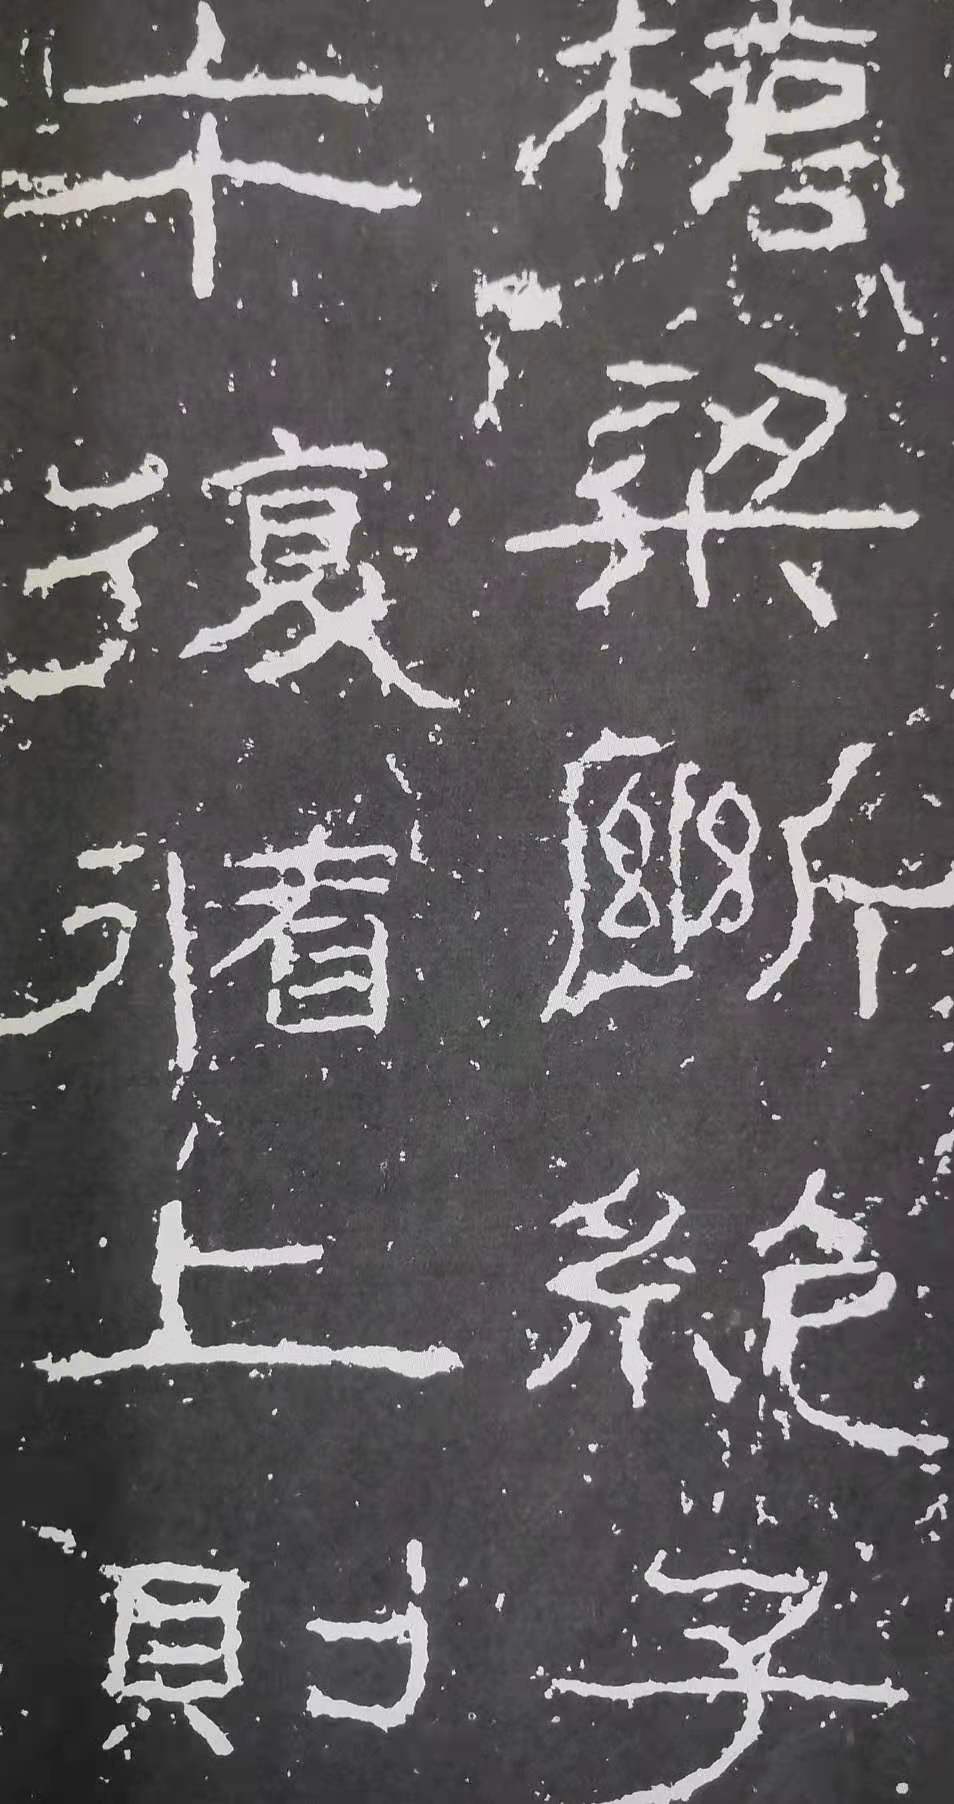 橋梁斷絕子
午復循上則